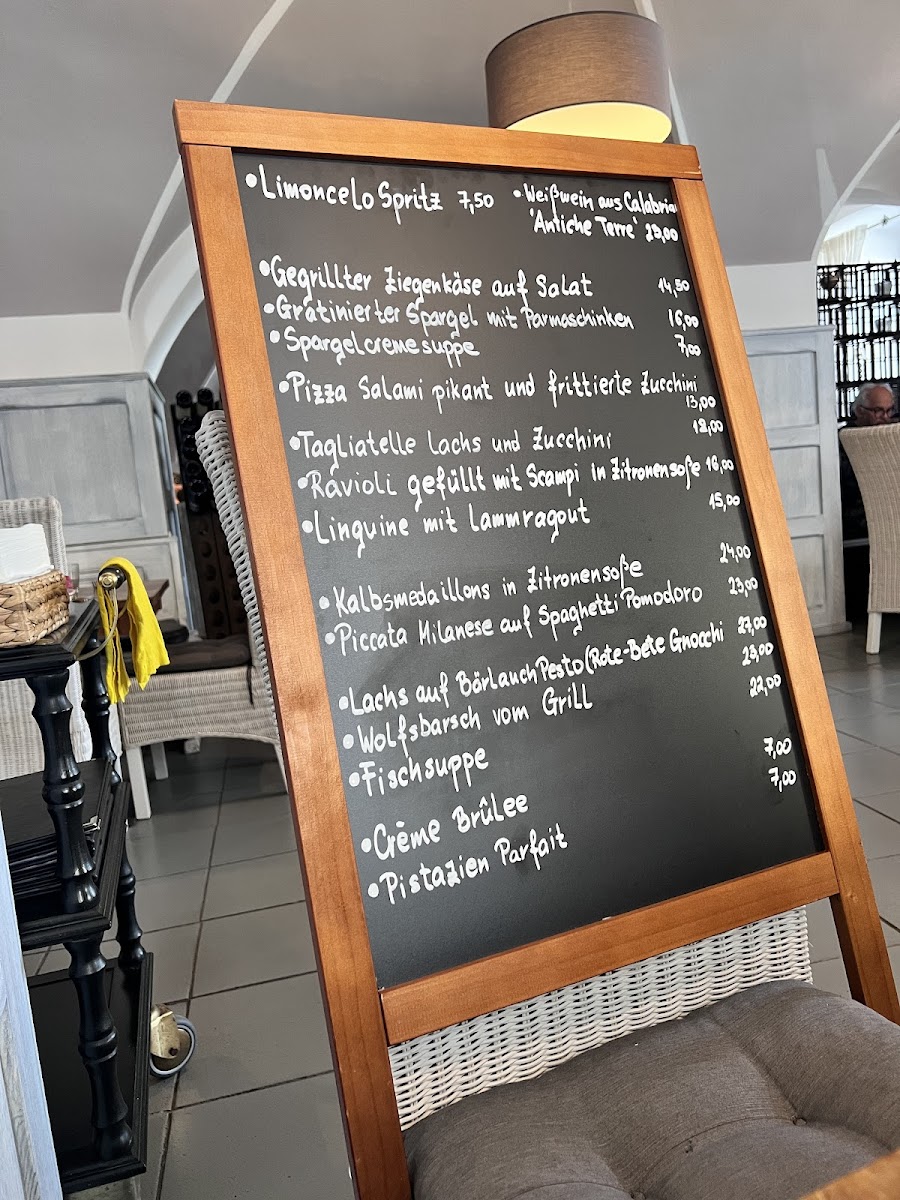 •Limoncelo Spritz 7,50
•Weißwein aus Calabria
'Antiche Terre' 23,00
•Gegrillter Ziegenkäse auf Salat 14,50
•Gratinierter Spargel mit Parmaschinken 16,00
•Spargelcremesuppe 7,00
•Pizza Salami pikant und frittierte Zucchini
13,00
•Tagliatelle Lachs und Zucchini 18,00
•Ravioli gefüllt mit Scampi in Zitronensoße 16,00
•Linguine mit Lammragout 15,00
•Kalbsmedaillons in Zitronensoße 24,00
•Piccata Milanese auf Spaghetti Pomodoro 23,00
•Lachs auf Bärlauch Pesto (Rote-Bete Gnocchi 27,00
•Wolfsbarsch vom Grill 23,00
•Fischsuppe 22,00
•Crème Brûlee 7,00
•Pistazien Parfait 7,00